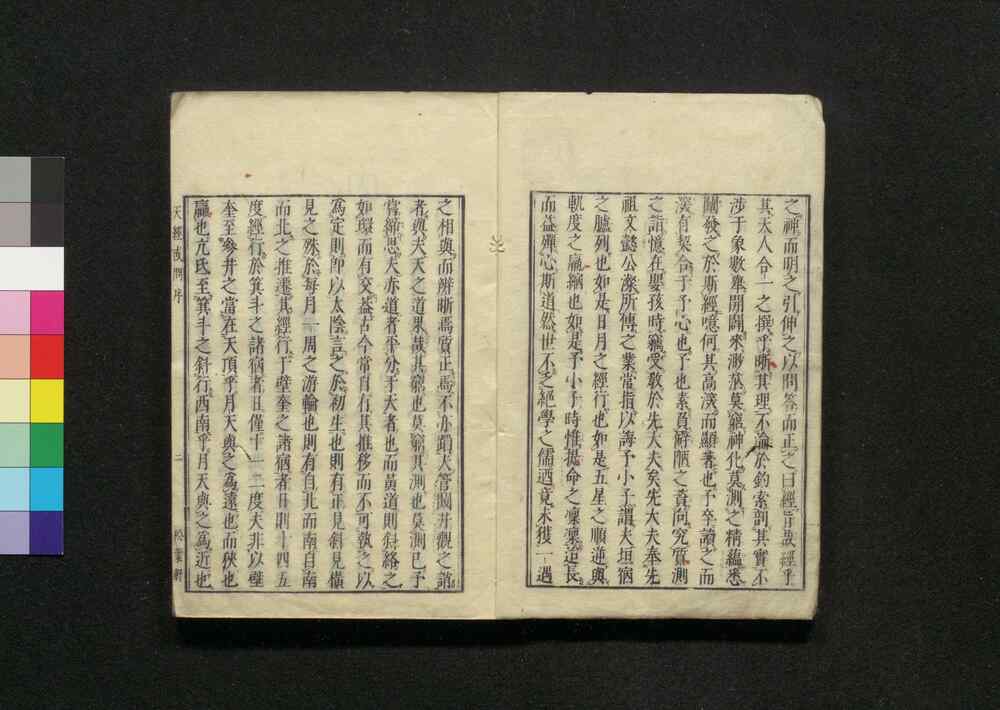 之禪而明之引伸之以問答而正之曰經旨哉經乎
其天人合一之撰乎晰其理不淪於釣索剖其實不
涉于象數舉開闢來渺莫窮神化莫測之精蘊悉
闡發之於斯經噫何其高淺而顯著也予卒讀之而
深有契合于予心也予也素負癖陋之資向究質測
之詣憶在嬰孩時竊受敎於先大夫矣先大夫奉先
祖文懿公㴱所傳之業常指以誨予小子謂天垣宿
之臚列也如是日月之經行也如是五星之順逆與
軌度之贏縮也如是予小子時惟提命之凜凜迨長
而益殫心斯道然世不乏絕學之儒迺竟未獲一遇
之相與而辨晰焉質正焉不亦蹈大管闚井觀之誚
者與夫天之道果哉其窮也莫窮其測也莫測已予
嘗緬思夫赤道者平分于天者也而黃道則斜絡之
如環而有交葢古今常自有其推移而不可執之以
爲定則即以太陰言之於初生也則有正見斜見橫
見之殊於每月一周之游輪也則有自北而南自南
而北之推遷其經行于壁奎之諸宿者日則十四五
度經行於箕斗之諸宿者日僅十一二度夫非以壁
奎至參井之當在天頂乎月天與之爲遠也而狹也
贏也亢氐至箕斗之斜行西南乎月天與之爲近也
天經或問序 二 松葉軒